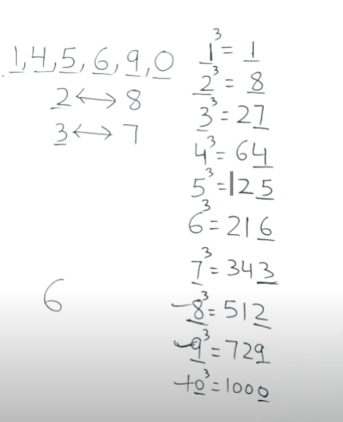 1,4,5,6,9,0
2↔8
3↔7
6
1³=1
2³=8
3³=27
4³=64
5³=125
6³=216
7³=343
8³=512
9³=729
10³=1000